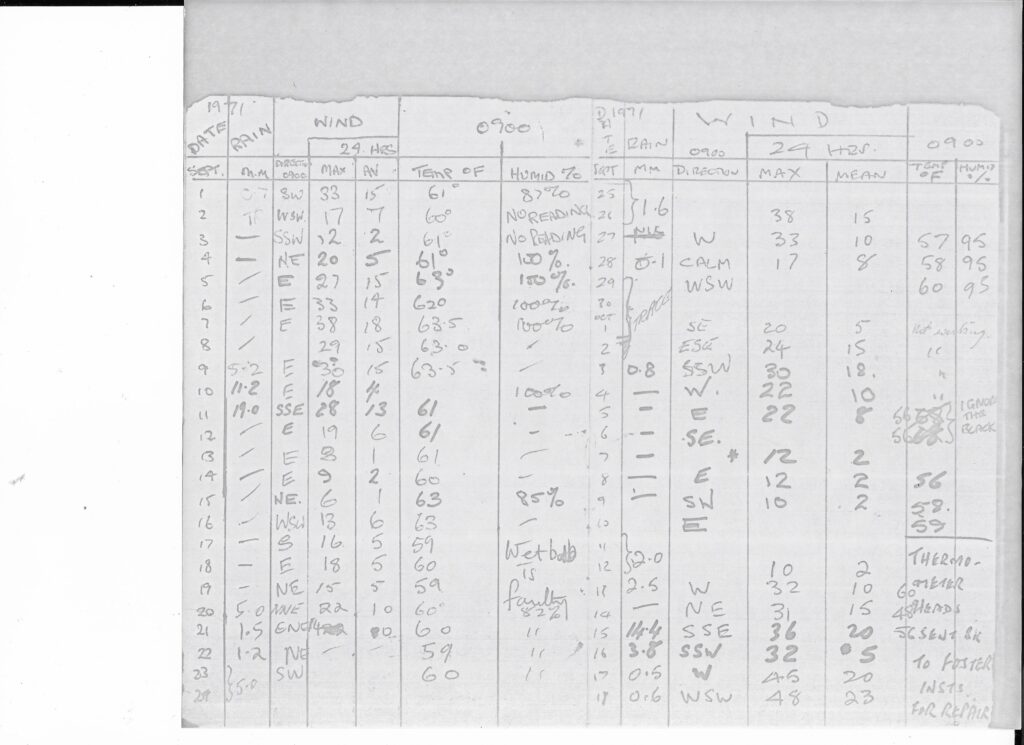 1971 WIND 0900 D 1971 WIND
DATE RAIN 24 HRS A T E RAIN 0900 24 HRS. 0900
SEPT. M.M 0900 MAX AV TEMP OF HUMID % SEPT MM DIRECTION MAX MEAN TEMP OF HUMID %
1 SW 33 15 61° 87% 25
2 WSW 17 7 60° NO READING 26 } 1.6 38 15
3 — SSW 12 2 61° NO READING 27 W 33 10 57 95
4 — NE 20 5 61° 100%. 28 0.1 CALM 17 8 58 95
5 / E 27 15 63° 100%. 29 WSW 60 95
6 / E 33 14 620 100% 30
7 / E 38 18 63.5 100% OCT 1 TRACE SE 20 5 Not working
8 / 29 15 63.0 / 2 ESE 24 15 "
9 5.2 E 30 15 63.5 3 0.8 SSW 30 12. "
10 11.2 E 18 4 100% 4 — W. 22 10 "
11 19.0 SSE 28 13 61 — 5 — E 22 8 56 IGNORE
12 / E 19 6 61 — 6 — SE. 56 THE BLACK
13 / E 8 1 61 — 7 — * 12 2
14 / E 9 2 60 — 8 — E 12 2 56
15 / NE. 6 1 63 85% 9 — SW 10 2 58.
16 — WSW 13 6 63 — 10 E 59
17 — S 16 5 59 Wet bulb 11
18 — E 18 5 60 is 12 } 2.0 10 2 THERMO-
19 — NE 15 5 59 faulty 13 2.5 W 32 10 60 METER
20 5.0 NNE 22 10 60° 82% 14 — NE 31 15 HEADS
21 1.5 ENE 60 " 15 14.4 SSE 36 20 56 SENT BK
22 1.2 NE — — 59 " 16 3.8 SSW 32 5 TO FOSTER
23 SW 60 " 17 0.5 W 45 20 INSTS
24 } 5.0 18 0.6 WSW 48 23 FOR REPAIR